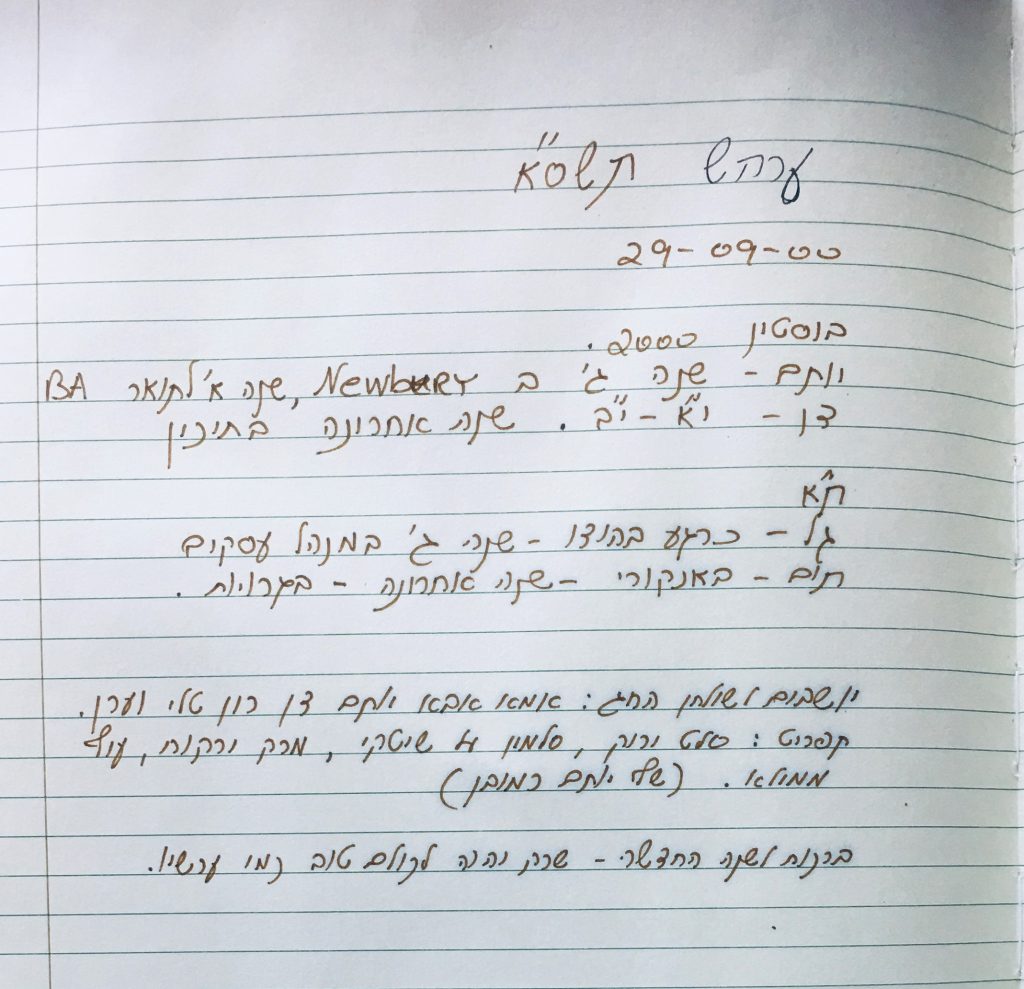 ערה״ש תשס״א
29-09-00
בוסטון 2000.
יותם - שנה ג' ב Newbury, שנה א' לתואר BA
דן - י״א - י״ב. שנה אחרונה בתיכון
ת״א
גל - כרגע בהודו - שנה ג' במנהל עסקים
תום - באנקורי - שנה אחרונה - בגרויות.
יושבים לשולחן החג: אמא אבא יותם דן רון טלי וערן.
תפריט: סלט ירוק, סלמון שיטקי, מרק ירקות, עוף
ממולא. (של יותם כמובן)
ברכות לשנה החדשה - שרק יהיה לכולם טוב כמו עכשיו.